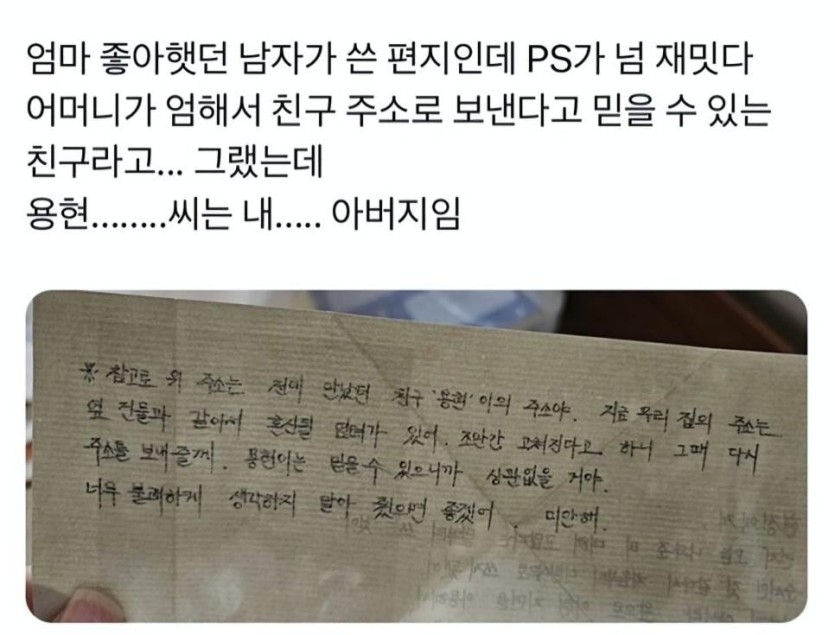 엄마 좋아햇던 남자가 쓴 편지인데 PS가 넘 재밋다
어머니가 엄해서 친구 주소로 보낸다고 믿을 수 있는
친구라고... 그랬는데
용현........씨는 내..... 아버지임
※ 참고로 위 주소는 전에 만났던 친구 '용현'이의 주소야. 지금 우리 집의 주소는
옆 건물과 같아서 혼선될 염려가 있어. 조만간 고쳐진다고 하니 그때 다시
주소를 보내줄께. 용현이는 믿을 수 있으니까 상관없을 거야.
너무 불쾌하게 생각하지 말아 줬으면 좋겠어. 미안해.